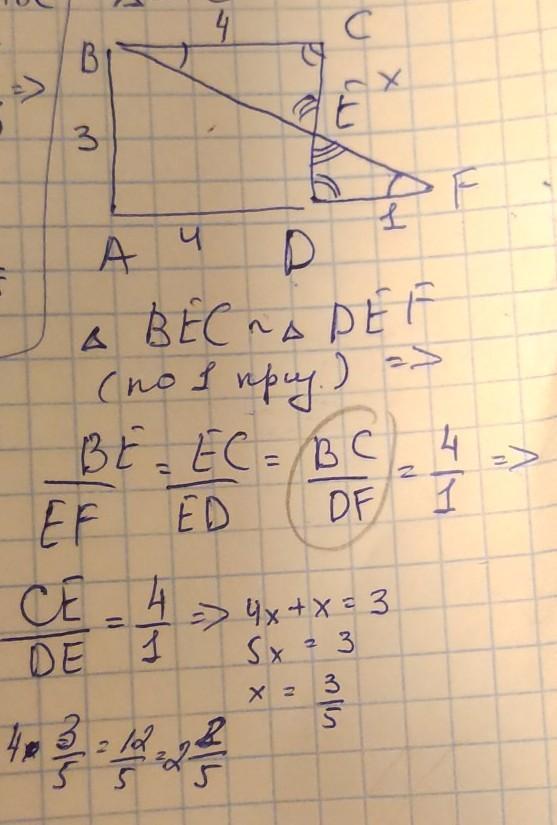 4
C
B
=>
E x
3
F
1
A 4 D
△ BEC ~ △ DEF
(по 1 призн.) =>
BE/EF = EC/ED = BC/DF = 4/1 =>
CE/DE = 4/1 => 4x + x = 3
5x = 3
x = 3/5
4 · 3/5 = 12/5 = 2 2/5